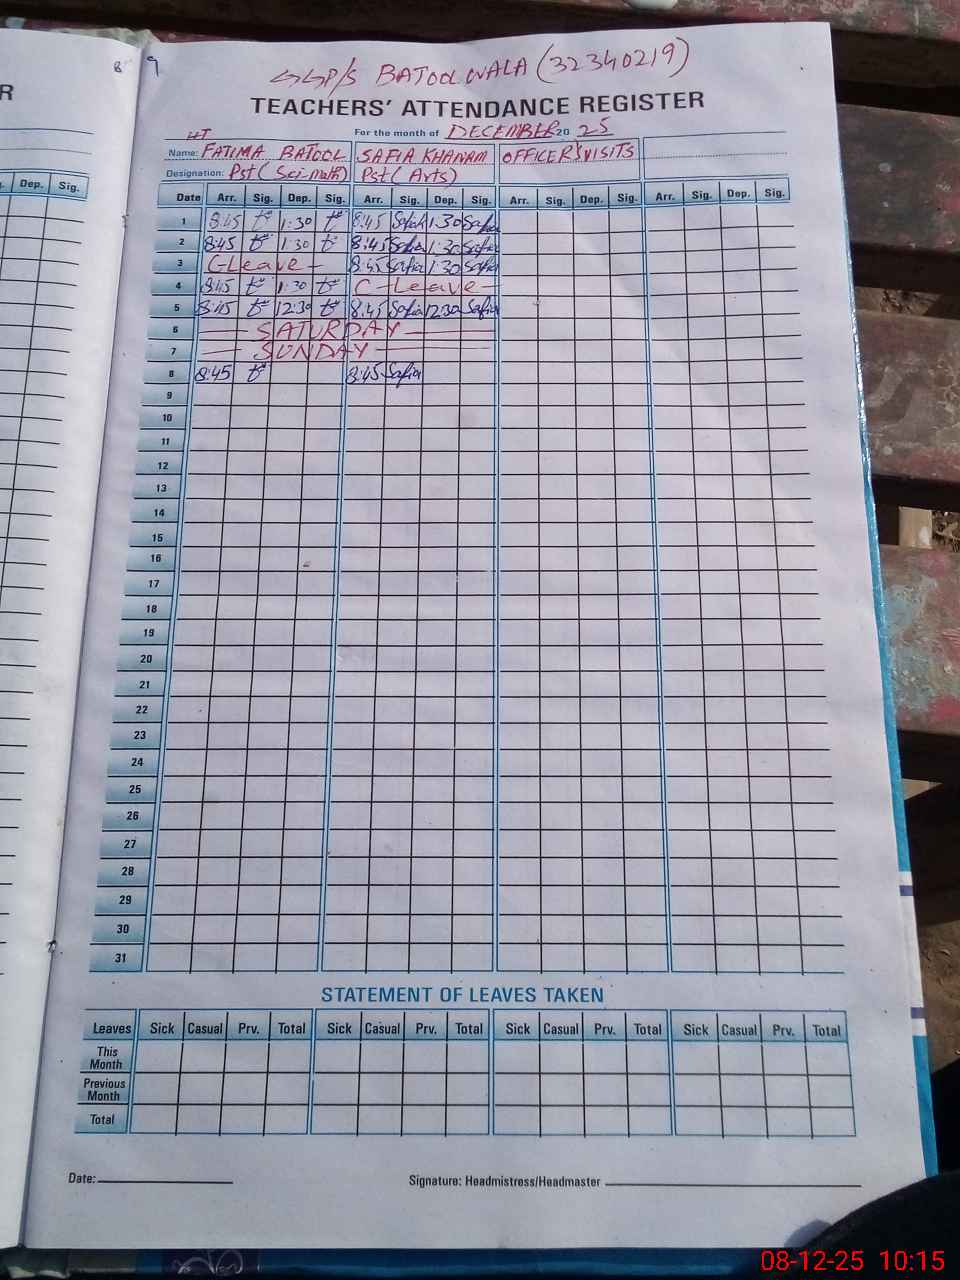 8 9
GGP/S BATOOL WALA (32340219)
R
TEACHERS' ATTENDANCE REGISTER
For the month of DECEMBER 20 25
HT
Name: FATIMA BATOOL SAFIA KHANAM OFFICER'S VISITS
Designation: Pst (Sci-math) Pst (Arts)
g. Dep. Sig.
Date Arr. Sig. Dep. Sig. Arr. Sig. Dep. Sig. Arr. Sig. Dep. Sig. Arr. Sig. Dep. Sig.
1 8:45 1:30 8:45 Safia 1:30 Safia
2 8:45 1:30 8:45 Safia 1:30 Safia
3 C-Leave - 8:45 Safia 1:30 Safia
4 8:45 1:30 C-Leave -
5 8:45 12:30 8:45 Safia 12:30 Safia
6 — SATURDAY —
7 — SUNDAY —
8 8:45 8:45 Safia
9
10
11
12
13
14
15
16
17
18
19
20
21
22
23
24
25
26
27
28
29
30
31
STATEMENT OF LEAVES TAKEN
Leaves Sick Casual Prv. Total Sick Casual Prv. Total Sick Casual Prv. Total Sick Casual Prv. Total
This Month
Previous Month
Total
Date: Signature: Headmistress/Headmaster
08-12-25 10:15